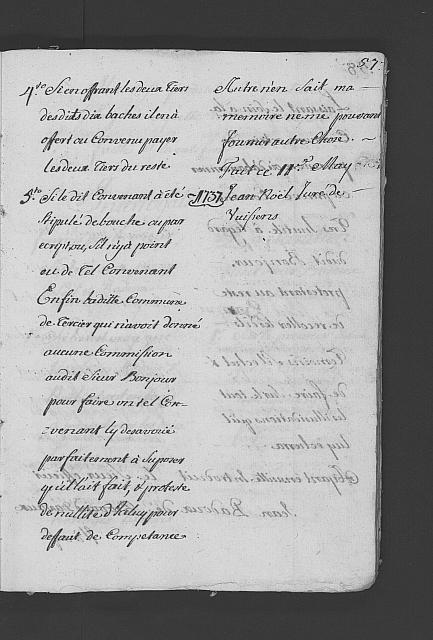 57.
4.to Si en offrant les deux Tiers
des dits dix baches il en à
offert ou Convenu payer
les deux Tiers du reste
5.to Si le dit Convenant à été
stipulé de bouche ou par
ecript ou, s'il n'y à point
eu de Tel Convenant
Enfin laditte Commune
de Tercier qui n'avoit donné
aucune Commission
audit Sieur Bonjour
pour faire un tel Con-
-venant Ly desavoüe
parfaitement à Suposer
qu'il l'ait fait, & proteste
de nullité d'Iceluy pour
deffaut de Competance
Autre n'en Sait ma
memoire ne me pouvant
fournir autre Chose
Fait ce 11.me May
1757 Jean Noël Juré de
Vuisens